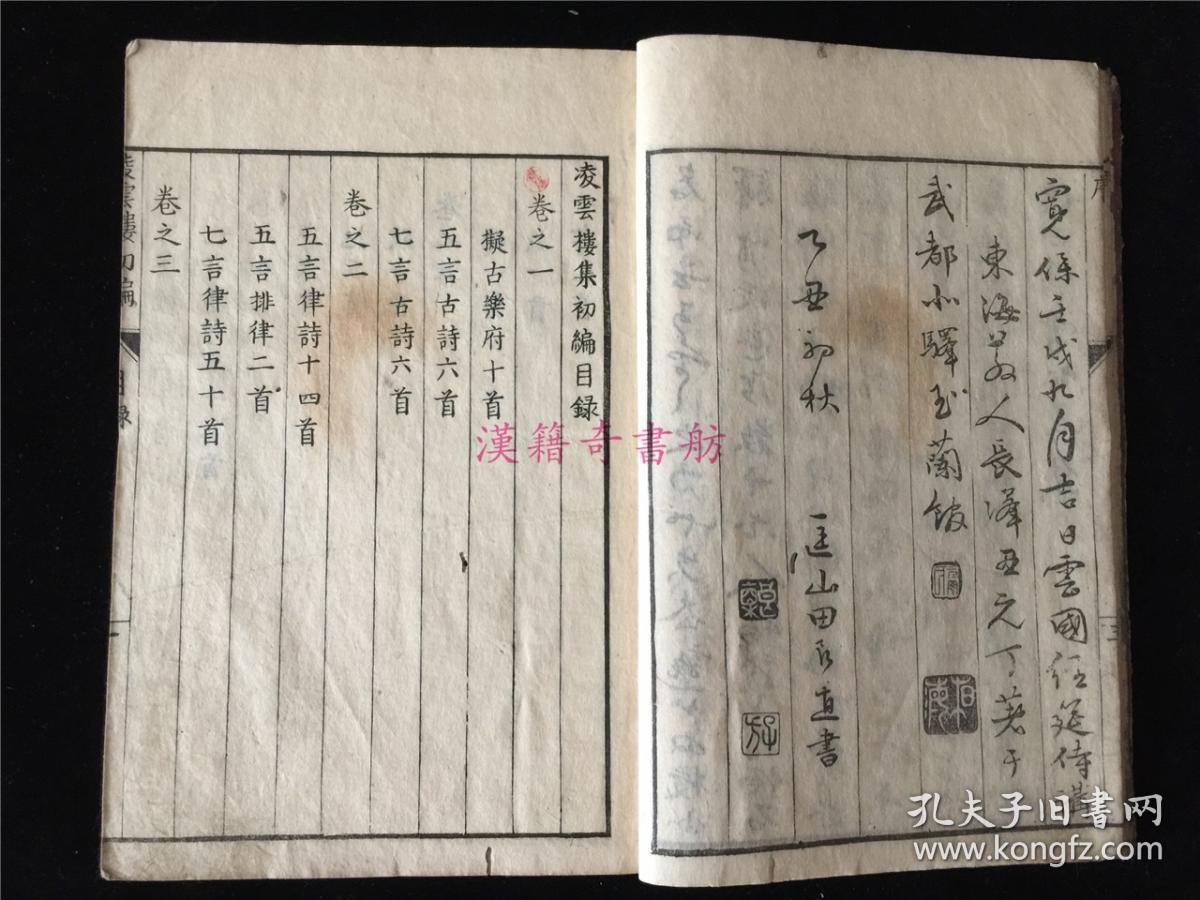 序
寛保壬戌九月吉日雲國經筵侍講
東海散人長澤丑元丁著于
武都小驛玉蘭館
乙丑初秋 匡山田良直書
三
凌雲樓集初編目録
卷之一
擬古樂府十首
五言古詩六首
七言古詩六首
卷之二
五言律詩十四首
五言排律二首
七言律詩五十首
卷之三
凌雲樓初編
目録
一
漢籍奇書舫
孔夫子旧書网
www.kongfz.com